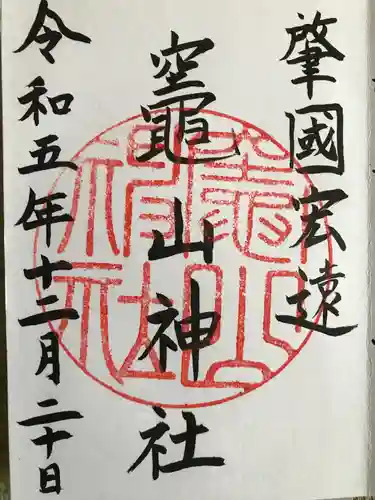 肇國宏遠
竈山神社
令和五年十二月二十日
竈山神社